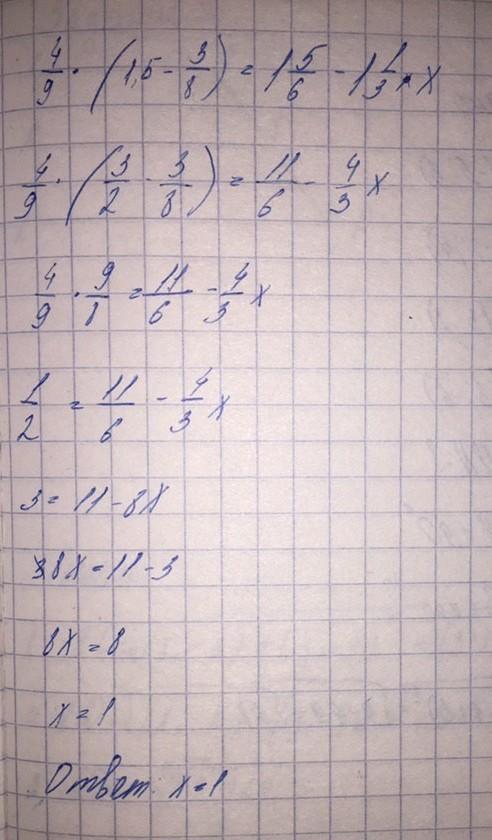 4/9 · (1,5 - 3/8) = 1 5/6 - 1 1/3 · x
4/9 · (3/2 - 3/8) = 11/6 - 4/3 x
4/9 · 9/8 = 11/6 - 4/3 x
1/2 = 11/6 - 4/3 x
3 = 11 - 8x
8x = 11 - 3
8x = 8
x = 1
Ответ: x = 1